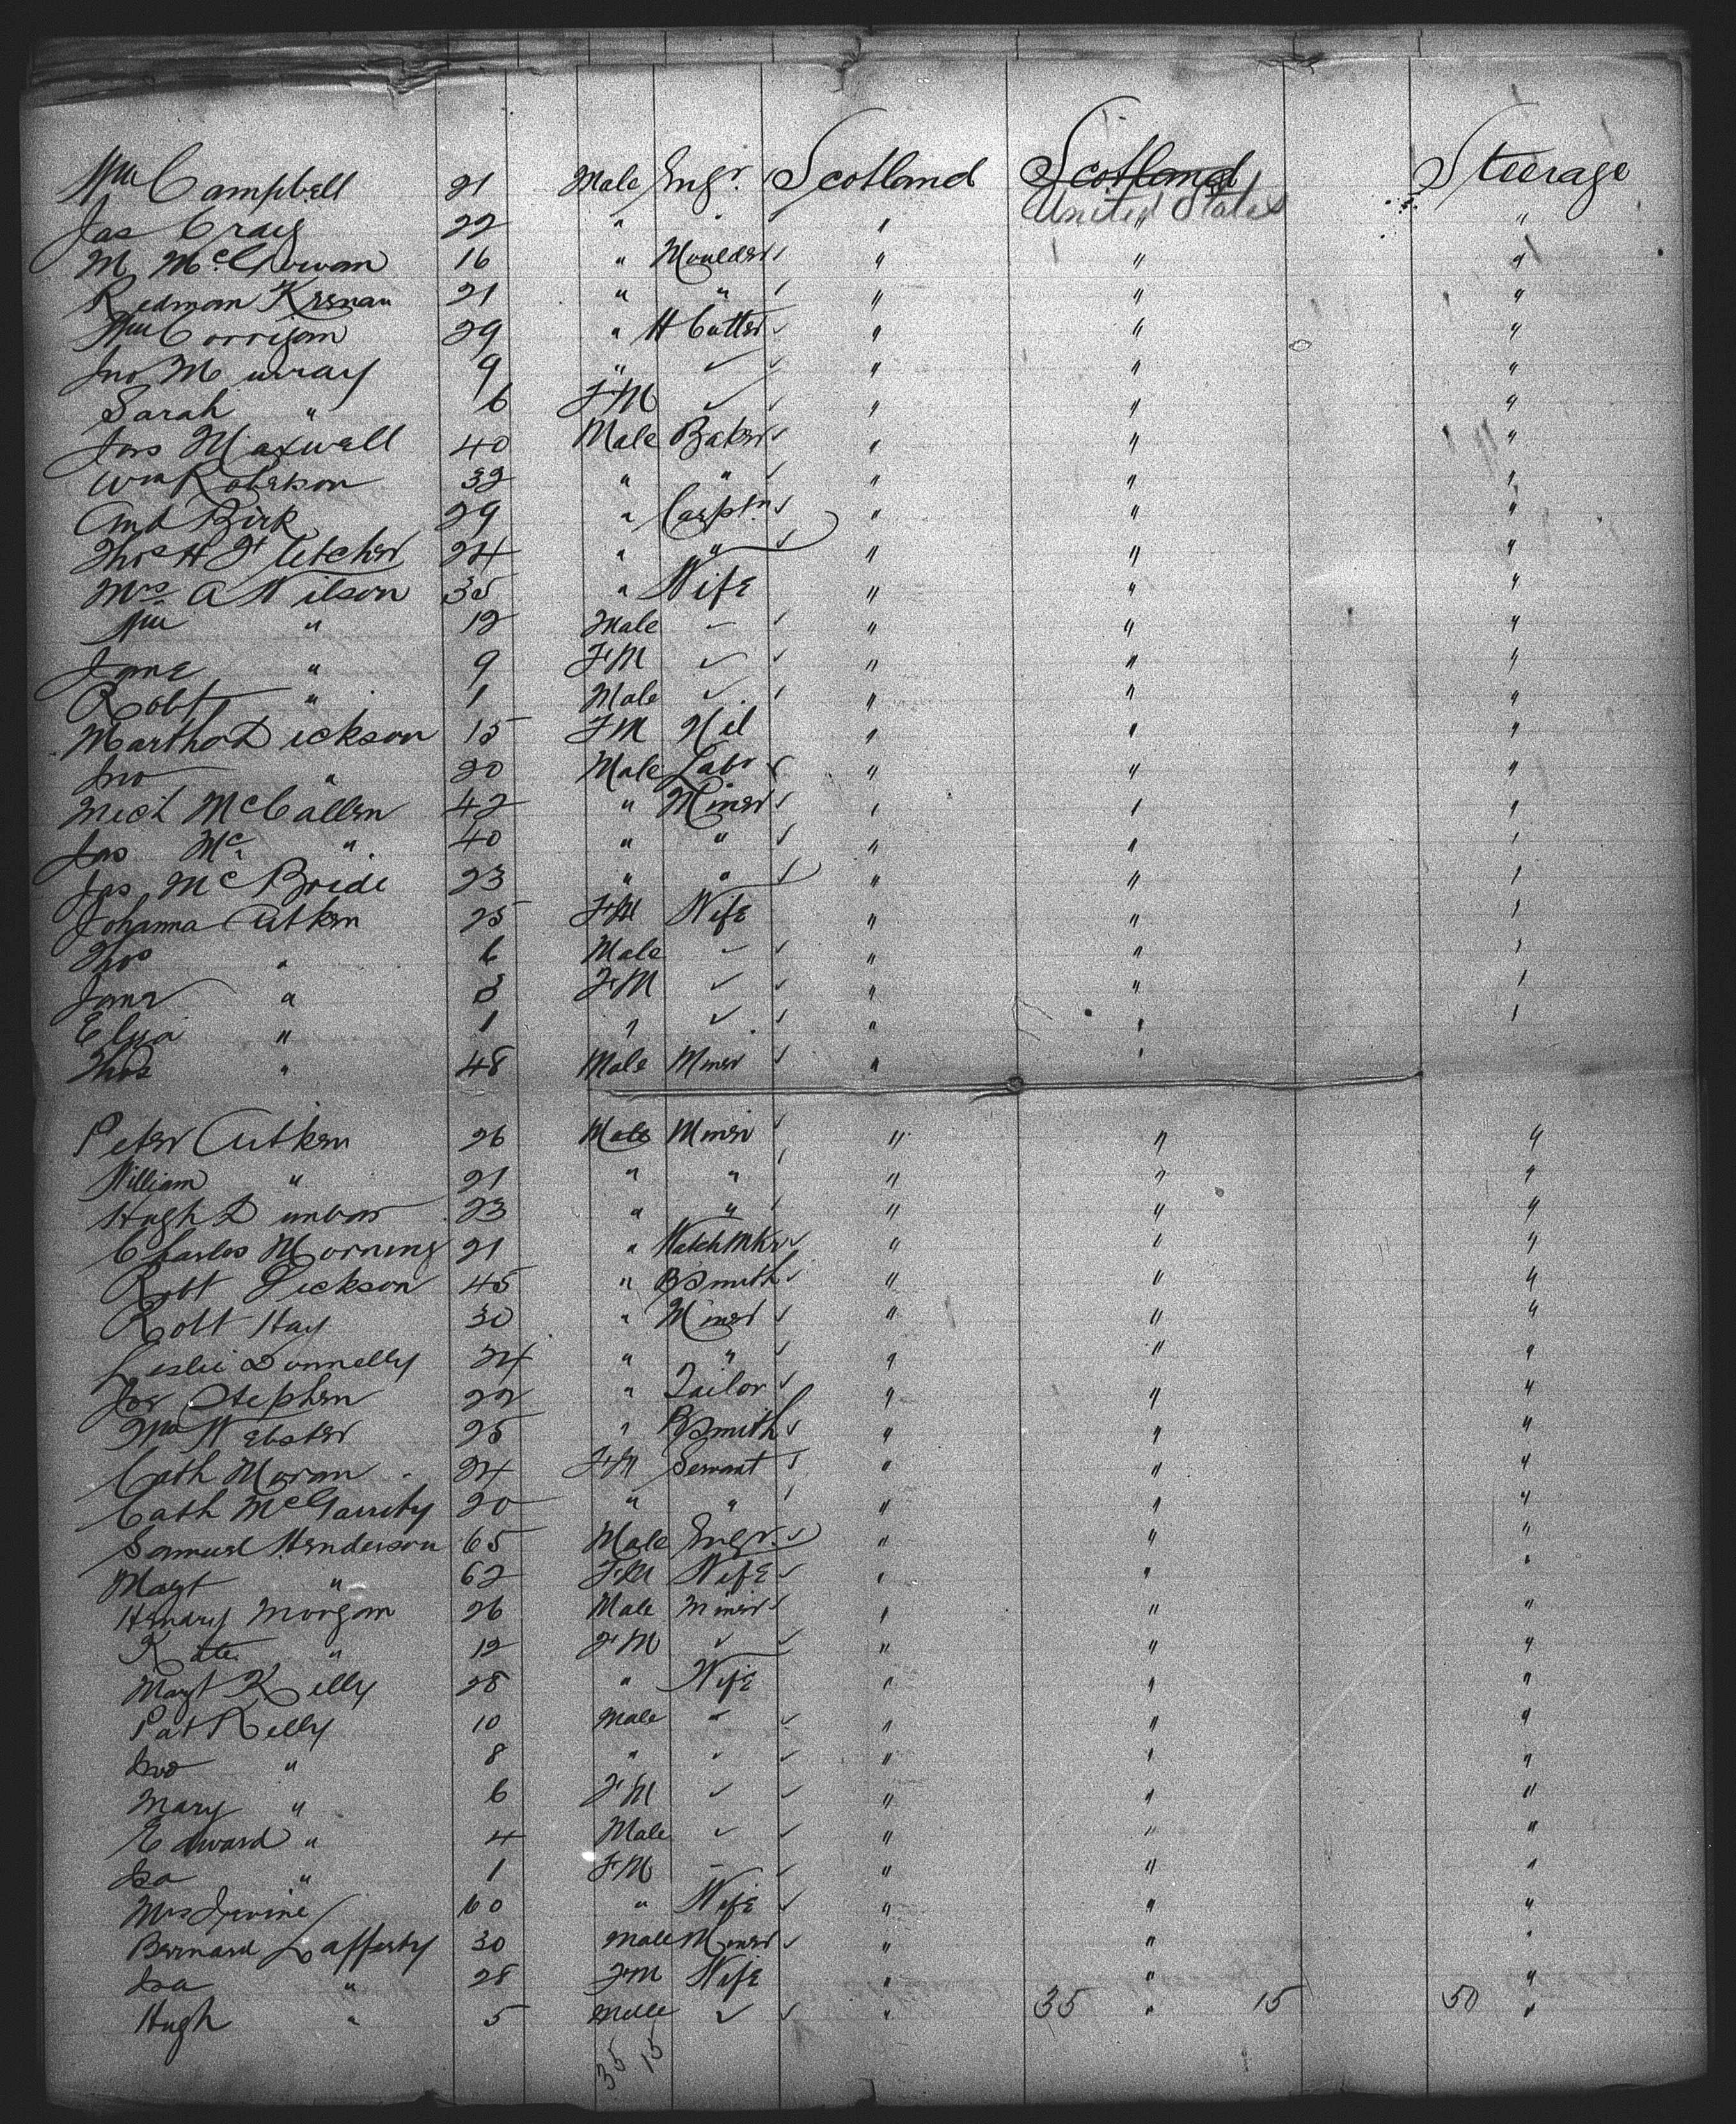 Wm Campbell 21 Male Engr. Scotland Scotland Steerage
United States
Jas Craig 22 " " " " "
M McGowan 16 " Moulder " " "
Redman Keenan 21 " " " " "
Wm Corrigan 29 " H Cutter " " "
Jno Murray 9 " ✓ " " "
Sarah " 6 FM ✓ " " "
Jas Maxwell 40 Male Baker " " "
Wm Robertson 32 " " " " "
And Birk 29 " Carptr " " "
Thos H Fletcher 24 " " " " "
Mrs A Wilson 35 " Wife " " "
Wm " 12 Male ✓ " " "
Jane " 9 FM ✓ " " "
Robt " 1 Male ✓ " " "
Martha Dickson 15 FM Nil " " "
Jno " 20 Male Labr " " "
Mich McCallen 42 " Miner " " "
Jas Mc " 40 " " " " "
Jas McBride 23 " " " " "
Johanna Aitken 25 FM Wife " " "
Thos " 6 Male ✓ " " "
Jane " 3 FM ✓ " " "
Eliza " 1 " ✓ " " "
Thos " 48 Male Miner " "
Peter Aitken 26 Male Miner " " "
William " 21 " " " " "
Hugh Dunbar 23 " " " " "
Charles Morning 21 " WatchMkr " " "
Robt Dickson 45 " BSmith " " "
Robt Hay 30 " Miner " " "
Leslie Donnelly 24 " " " " "
Jas Stephen 22 " Tailor " " "
Wm Webster 25 " BSmith " " "
Cath Moran 24 FM Servant " " "
Cath McGarrity 20 " " " " "
Samuel Henderson 65 Male Engr. " " "
Magt " 62 FM Wife " " "
Hendry Morgan 26 Male Miner " " "
Kate " 12 FM ✓ " " "
Magt Kelly 28 " Wife " " "
Pat Kelly 10 Male ✓ " " "
Jno " 8 " ✓ " " "
Mary " 6 FM ✓ " " "
Edward " 4 Male ✓ " " "
Isa " 1 FM ✓ " " "
Mrs Irvine 60 " Wife " " "
Bernard Lafferty 30 Male Miner " " "
Isa " 28 FM Wife " " "
Hugh " 5 Male ✓ " 35 " 15 50 "
35 15